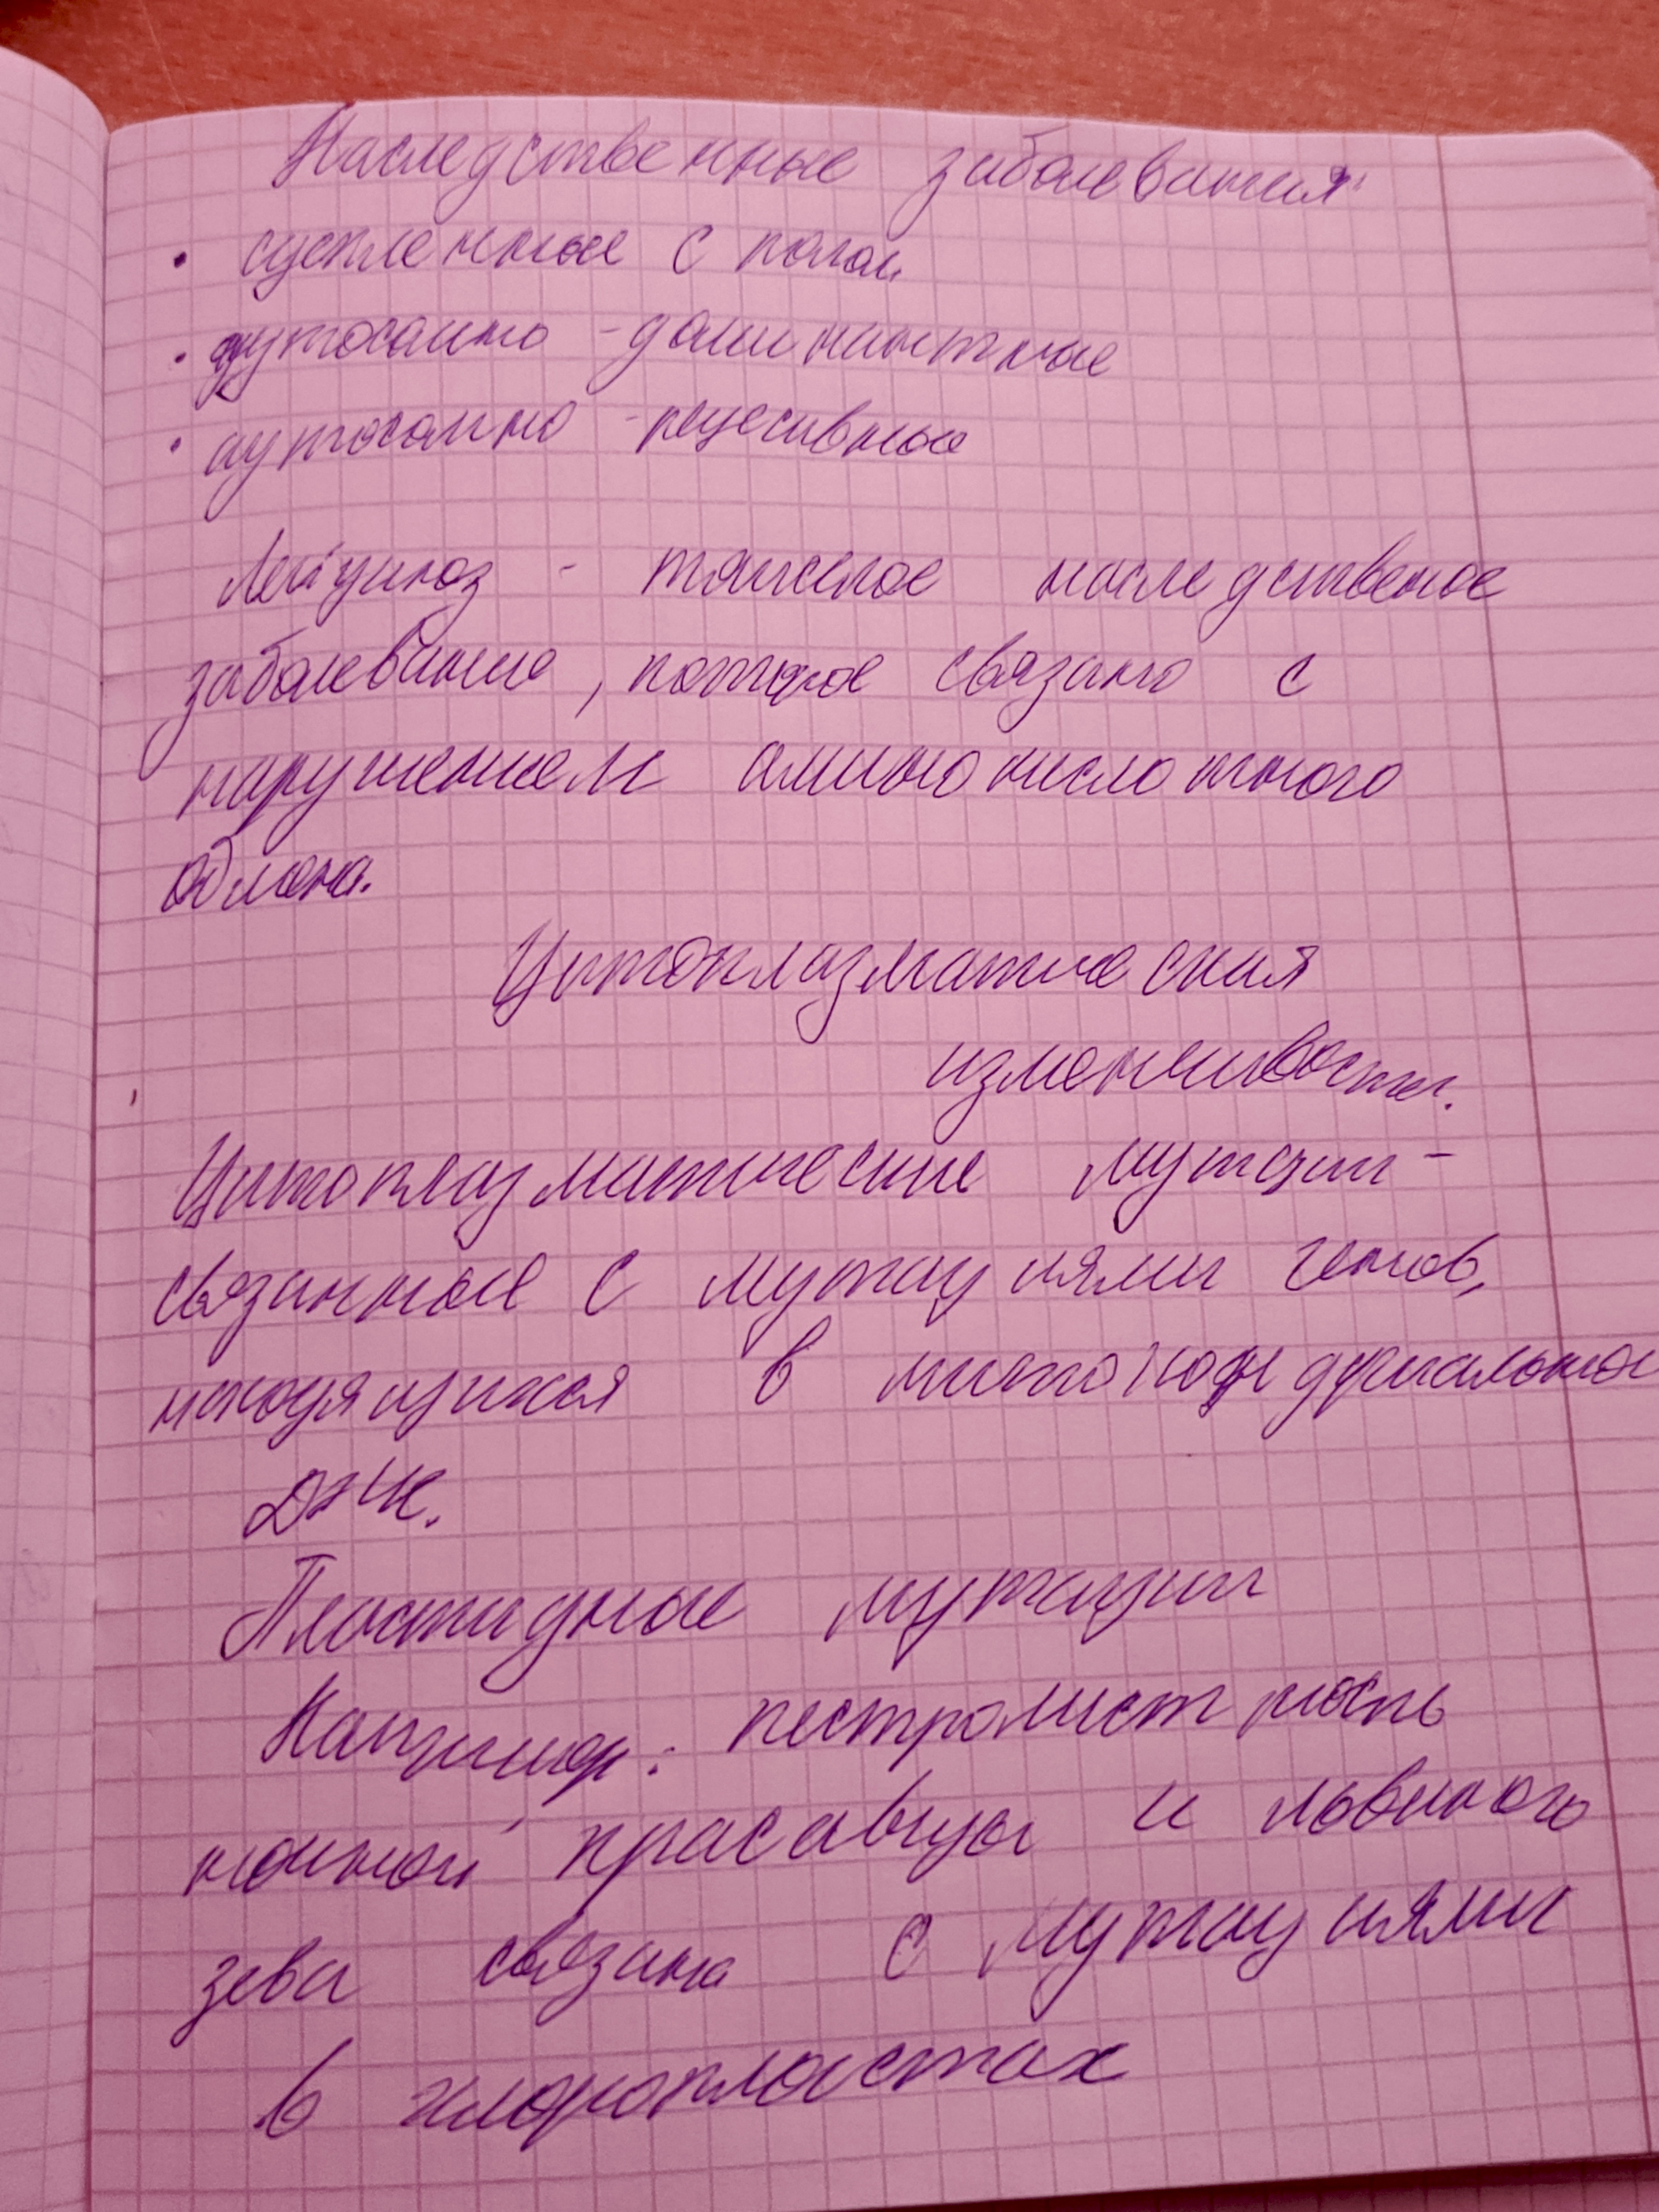 Наследственные заболевания
• сцепленные с полом
• аутосомно - доминантные
• аутосомно - рецесивные
Лейциноз - тяжелое наследственое
заболевание, которое связано с
нарушением аминокислотного
обмена.
Цитоплазматическая
изменчивость.
Цитоплазматические мутации -
связанные с мутациями генов,
находящихся в митохондриальной
ДНК.
Пластидные мутации
Например: пестролистность
ночной красавицы и львиного
зева связана с мутациями
в хлоропластах